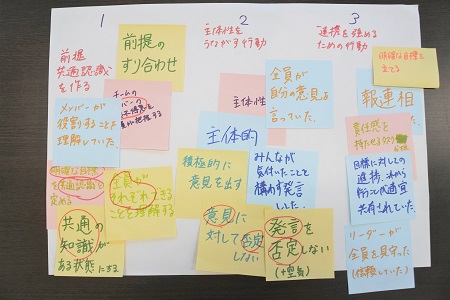 1
前提
共通認識
を作る
前提の
すり合わせ
メンバーが
役割することよ
理解していた。
チームの
明確な目標
を共通認識と
定める
全員が
それぞれできる
ことを理解する
共通の
知識が
ある状態にする
2
主体性を
うながす行動
主体性
全員が
自分の意見を
言っていた。
主体的
積極的に
意見を出す
みんなが
気付いたことを
構内す発言
した。
意見に
対して否定
しない
発言を
否定しない
(空気)
3
連携を強める
ための行動
明確な目標を
立てる
報連相
責任感を
持たせる
目標に対しての
進捗、わから
行うこと適宜
共有されていた。
リーダーが
全員を見守った
(信頼していた)